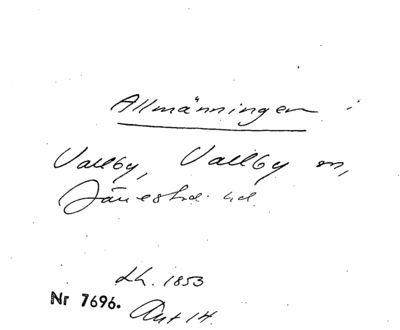 Allmänningen i
Vallby, Vallby sn,
Järrestad hd.
Lh. 1853
Nr 7696. Akt 14.